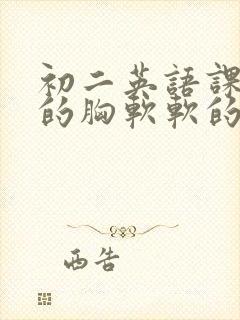 初二英語課
的胸軟軟的
西告